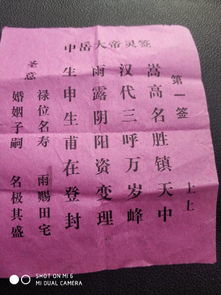 中岳大帝灵签
第一签
上上
嵩高名胜镇天中
汉代三呼万岁峰
雨露阴阳资变理
生申生甫在登封
圣意
禄位名寿 雨赐田宅
婚姻子嗣 名极其盛
SHOT ON MI 6
MI DUAL CAMERA